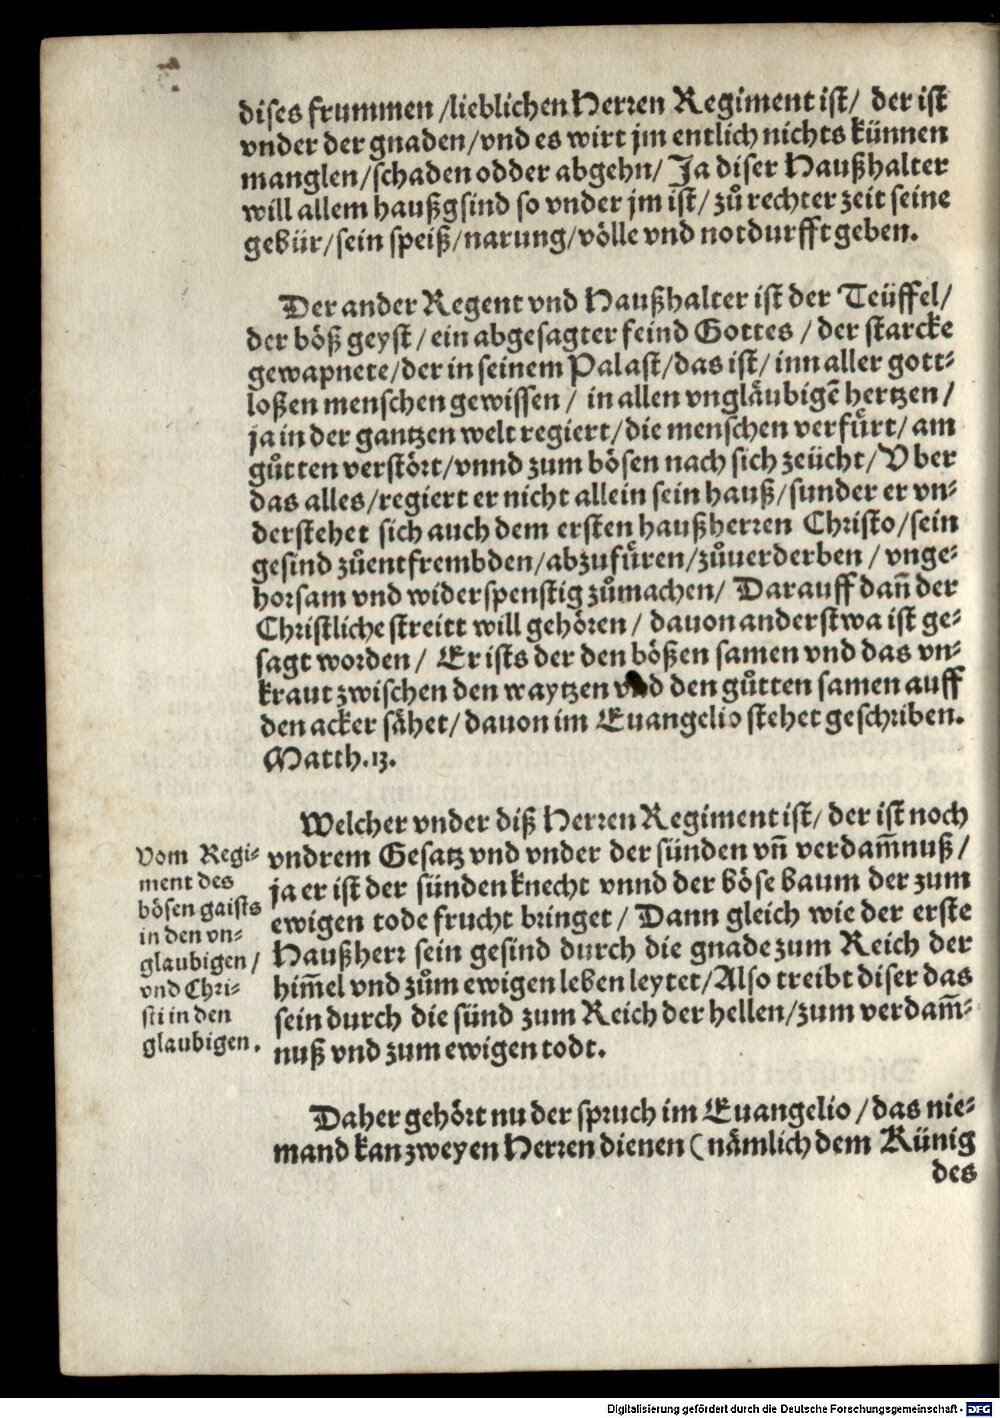 dises frummen /lieblichen Herren Regiment ist/ der ist
vnder der gnaden/vnd es wirt jm entlich nichts künnen
manglen/schaden odder abgehn/ Ja diser Haußhalter
will allem haußgsind so vnder jm ist/ zů rechter zeit seine
gebür/sein speiß/narung/völle vnd notdurfft geben.
Der ander Regent vnd Haußhalter ist der Teüffel/
der böß geyst/ein abgesagter feind Gottes / der starcke
gewapnete/der in seinem Palast/das ist/ inn aller gott⸗
loßen menschen gewissen / in allen vngläubigẽ hertzen /
ja in der gantzen welt regiert/die menschen verfůrt/ am
gůtten verstört/vnnd zum bösen nach sich zeücht/Vber
das alles/regiert er nicht allein sein hauß/sunder er vn⸗
derstehet sich auch dem ersten haußherren Christo/sein
gesind zůentfrembden/abzufüren/zůuerderben / vnge⸗
horsam vnd widerspenstig zůmachen/ Darauff dañ der
Christliche streitt will gehören / dauon anderstwa ist ge⸗
sagt worden/ Er ists der den bößen samen vnd das vn⸗
kraut zwischen den waytzen vnd den gůtten samen auff
den acker sähet/dauon im Euangelio stehet geschriben.
Matth.13.
Welcher vnder diß Herren Regiment ist/ der ist noch
vndrem Gesatz vnd vnder der sünden vñ verdam̃nuß/
ja er ist der sünden knecht vnnd der böse baum der zum
ewigen tode frucht bringet / Dann gleich wie der erste
Haußherr sein gesind durch die gnade zum Reich der
him̃el vnd zům ewigen leben leytet/Also treibt diser das
sein durch die sünd zum Reich der hellen/zum verdam̃⸗
nuß vnd zum ewigen todt.
Vom Regi⸗
ment des
bösen gaists
in den vn⸗
glaubigen /
vnd Chri⸗
sti in den
glaubigen.
Daher gehört nu der spruch im Euangelio /das nie⸗
mand kan zweyen Herren dienen (nämlich dem Künig
des
Digitalisierung gefördert durch die Deutsche Forschungsgemeinschaft - DFG